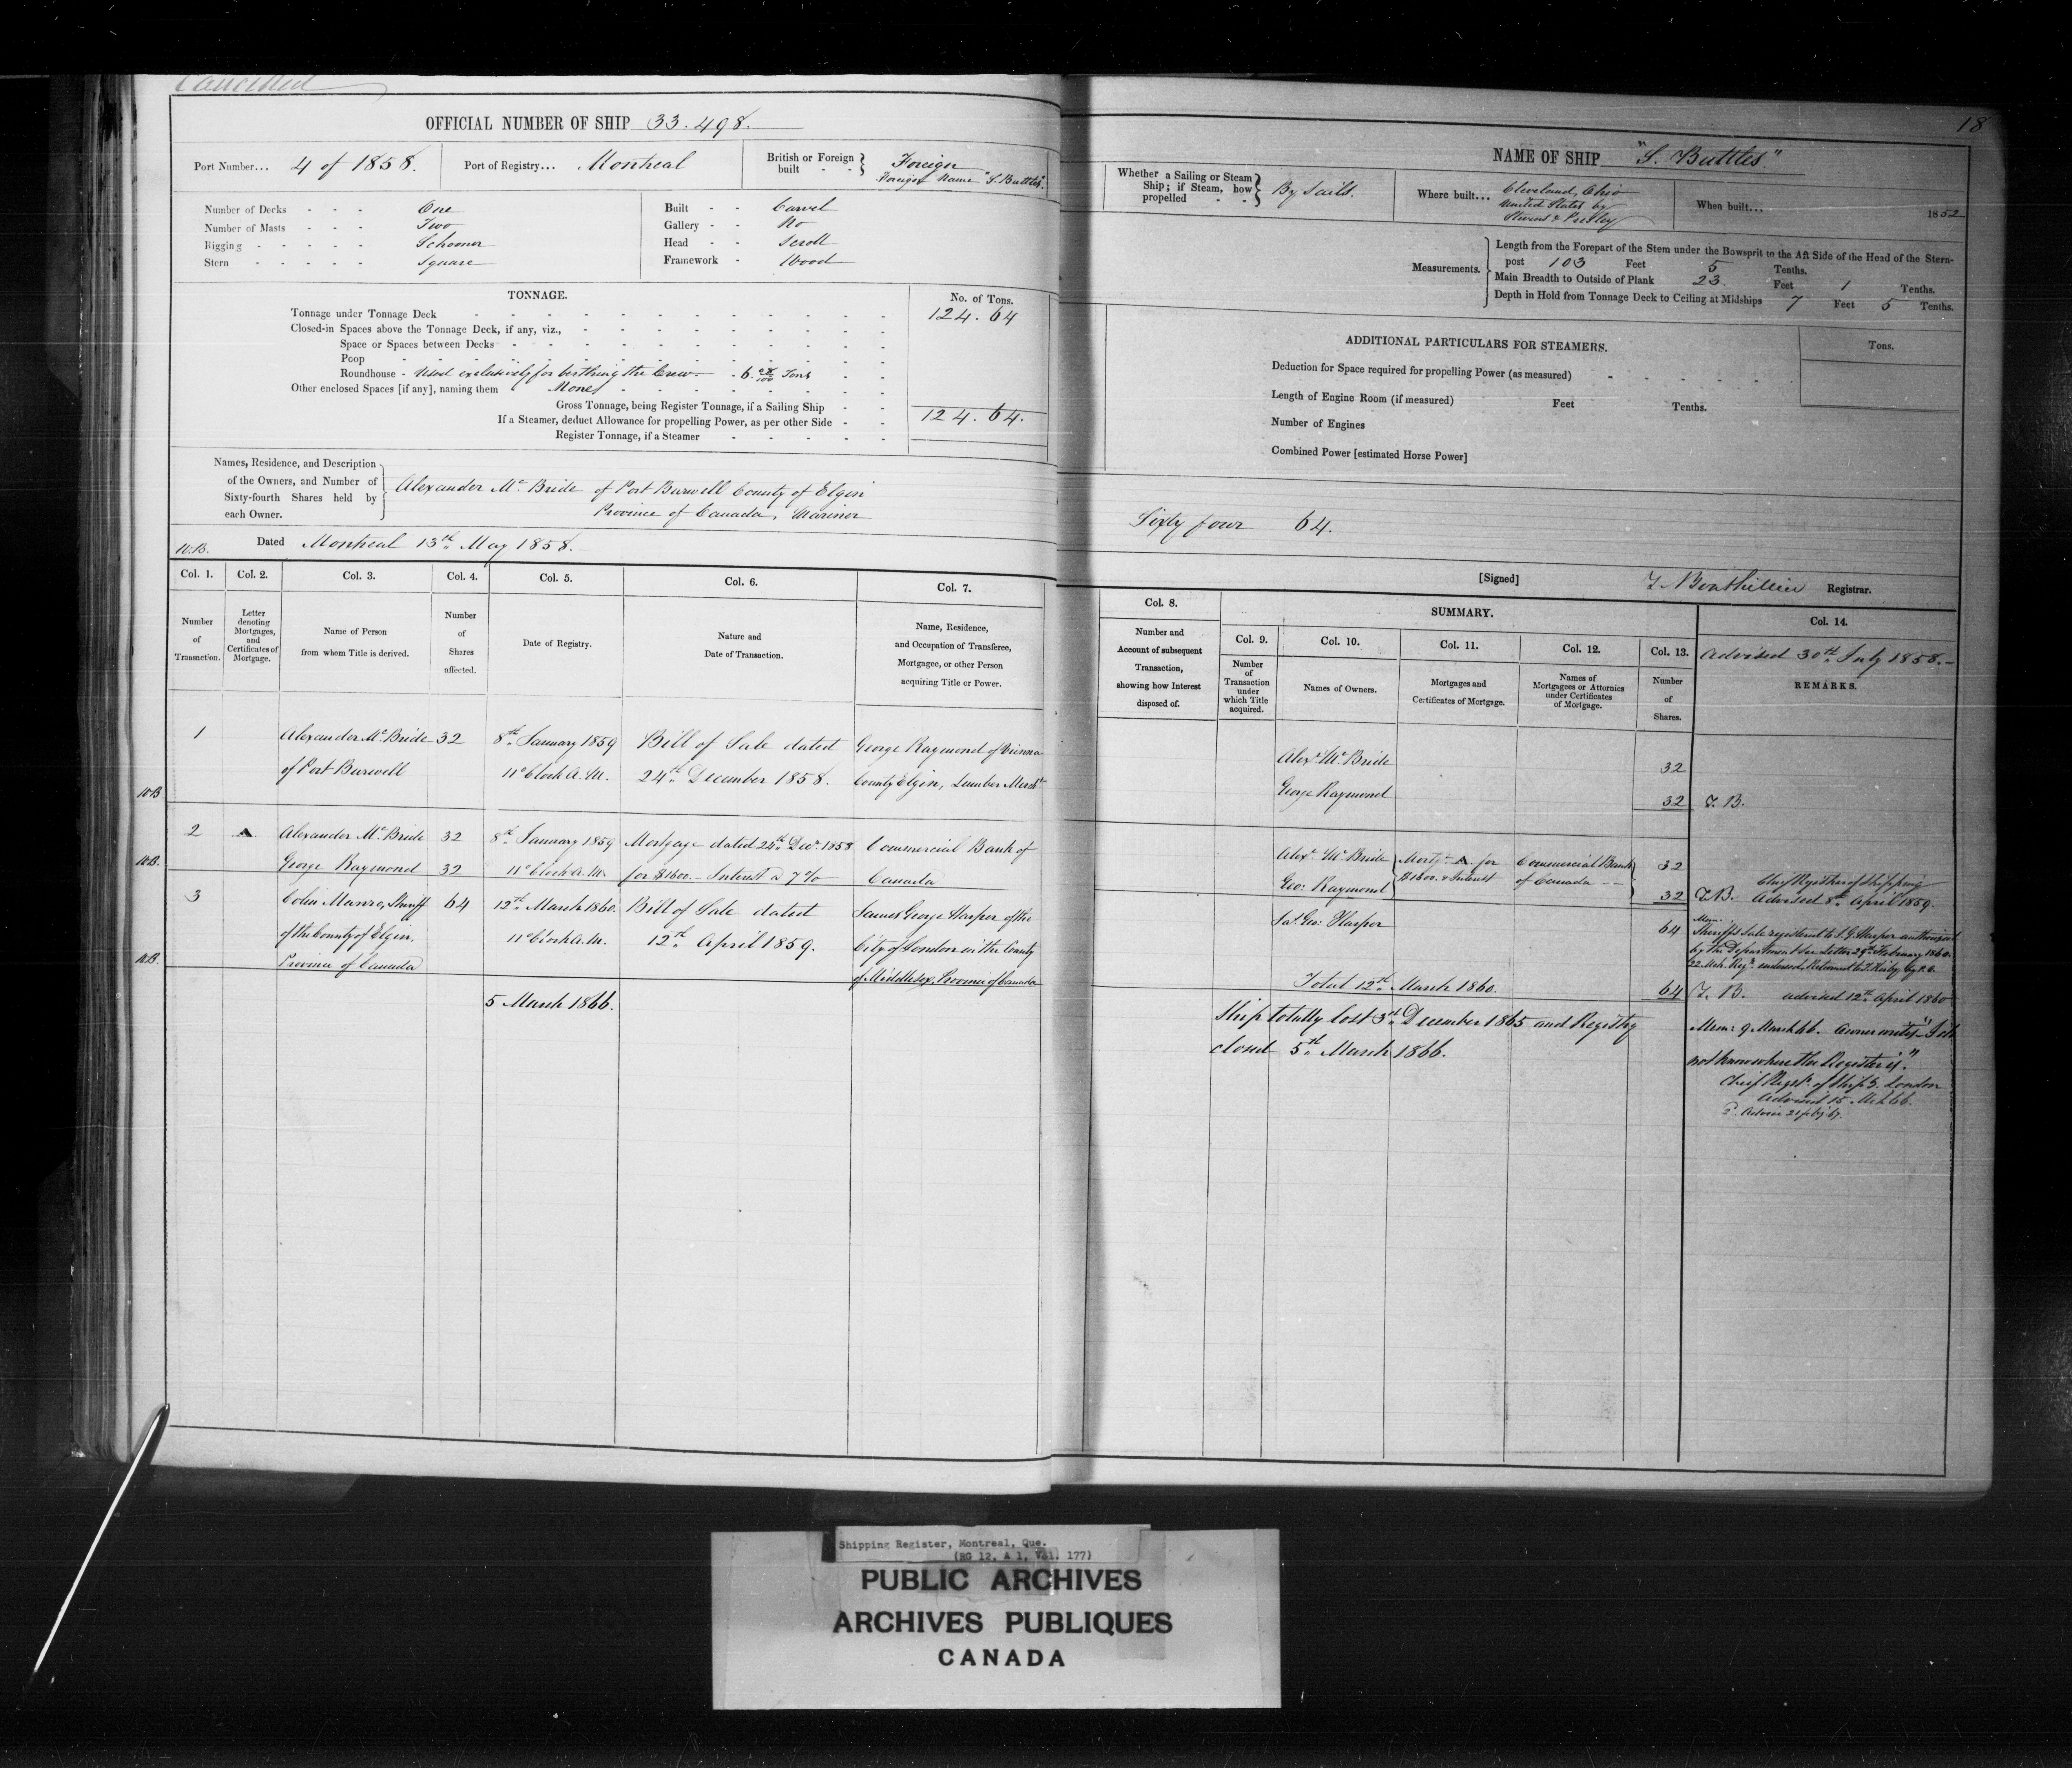 Cancelled
OFFICIAL NUMBER OF SHIP 33.498.
Port Number... 4 of 1858.
Port of Registry... Montreal
British or Foreign built - - Foreign
Foreign Name "S. Buttles".
Number of Decks - - - One
Number of Masts - - - Two
Rigging - - - - - Schooner
Stern - - - - - Square
Built - - Carvel
Gallery - - No
Head - - Scroll
Framework - Wood
TONNAGE.
No. of Tons.
Tonnage under Tonnage Deck 124.64
Closed-in Spaces above the Tonnage Deck, if any, viz.,
Space or Spaces between Decks
Poop
Roundhouse - Used exclusively for berthing the Crew - 6. Tons
Other enclosed Spaces [if any], naming them None
Gross Tonnage, being Register Tonnage, if a Sailing Ship 124.64.
If a Steamer, deduct Allowance for propelling Power, as per other Side
Register Tonnage, if a Steamer
Names, Residence, and Description
of the Owners, and Number of
Sixty-fourth Shares held by
each Owner.
Alexander McBride of Port Burwell County of Elgin
Province of Canada, Mariner
W.B. Dated Montreal 13th May 1858.
Col. 1. Col. 2. Col. 3. Col. 4. Col. 5. Col. 6. Col. 7.
Number of Transaction.
Letter denoting Mortgages, and Certificates of Mortgage.
Name of Person from whom Title is derived.
Number of Shares affected.
Date of Registry.
Nature and Date of Transaction.
Name, Residence, and Occupation of Transferee, Mortgagee, or other Person acquiring Title or Power.
1 Alexander McBride 32 8th January 1859 Bill of Sale dated George Raymond of Vienna
of Port Burwell 11 o'Clock A.M. 24th December 1858. County Elgin, Lumber Mercht
W.B
2 A. Alexander McBride 32 8th January 1859 Mortgage dated 24th Decr 1858 Commercial Bank of
W.B. George Raymond 32 11 o'Clock A.M. for $1600.- Interest @ 7% Canada
3 Colin Munro, Sheriff 64 12th March 1860. Bill of Sale dated James George Harper of the
of the County of Elgin. 11 o'Clock A.M. 12th April 1859. City of London in the County
W.B. Province of Canada of Middlesex, Province of Canada
5 March 1866.
18
NAME OF SHIP "S. Buttles"
Whether a Sailing or Steam Ship; if Steam, how propelled - - By Sails.
Where built... Cleveland, Ohio
United States by
Stevens & Presley
When built... 1852
Measurements.
Length from the Forepart of the Stem under the Bowsprit to the Aft Side of the Head of the Stern-
post 103 Feet 5 Tenths.
Main Breadth to Outside of Plank 23. Feet 1 Tenths.
Depth in Hold from Tonnage Deck to Ceiling at Midships 7 Feet 5 Tenths.
ADDITIONAL PARTICULARS FOR STEAMERS.
Tons.
Deduction for Space required for propelling Power (as measured)
Length of Engine Room (if measured) Feet Tenths.
Number of Engines
Combined Power [estimated Horse Power]
Sixty four 64.
[Signed] T. Bouthillier Registrar.
Col. 8. SUMMARY. Col. 14.
Col. 9. Col. 10. Col. 11. Col. 12. Col. 13.
Advised 30th July 1858.-
Number and Account of subsequent Transaction, showing how Interest disposed of.
Number of Transaction under which Title acquired.
Names of Owners.
Mortgages and Certificates of Mortgage.
Names of Mortgagees or Attornies under Certificates of Mortgage.
Number of Shares.
REMARKS.
Alexr McBride 32
George Raymond 32 T.B.
Alexr McBride Mortge A. for Commercial Bank 32
Geo: Raymond $1600. & Interest of Canada -- 32
Chief Register of Shipping
T.B. Advised 8th April 1859.
Jas. Geo: Harper 64
Mem:
Sheriff's Sale registered to J.G. Harper authorized
by the Department in Letter 29th February 1860.
Total 12th March 1860. 64 T.B. advised 12th April 1860
Ship totally lost 3rd December 1865 and Registry
closed 5th March 1866.
Mem: 9 March 66. Owner writes "I do
not know where the Register is."
Chief Regstr. of Ship'g. London
Advised 15 Mch 66.
Shipping Register, Montreal, Que.
(RG 12, A 1, Vol. 177)
PUBLIC ARCHIVES
ARCHIVES PUBLIQUES
CANADA